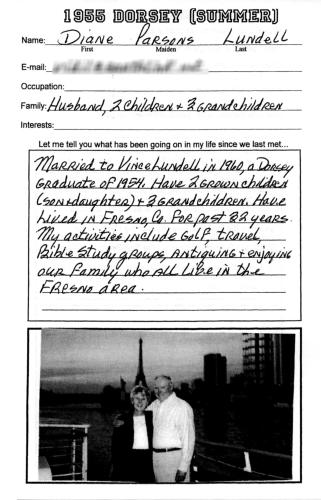 1955 DORSEY (SUMMER)
Name: Diane Parsons Lundell
First Maiden Last
E-mail:
Occupation:
Family: Husband, 2 Children + 3 Grandchildren
Interests:
Let me tell you what has been going on in my life since we last met...
Married to Vince Lundell in 1960, a Dorsey
graduate of 1954. Have 2 grown children
(son & daughter) + 3 grandchildren. Have
lived in Fresno, Ca. for past 22 years.
My activities include golf, travel,
Bible study groups, antiquing + enjoying
our family who all live in the
Fresno area.